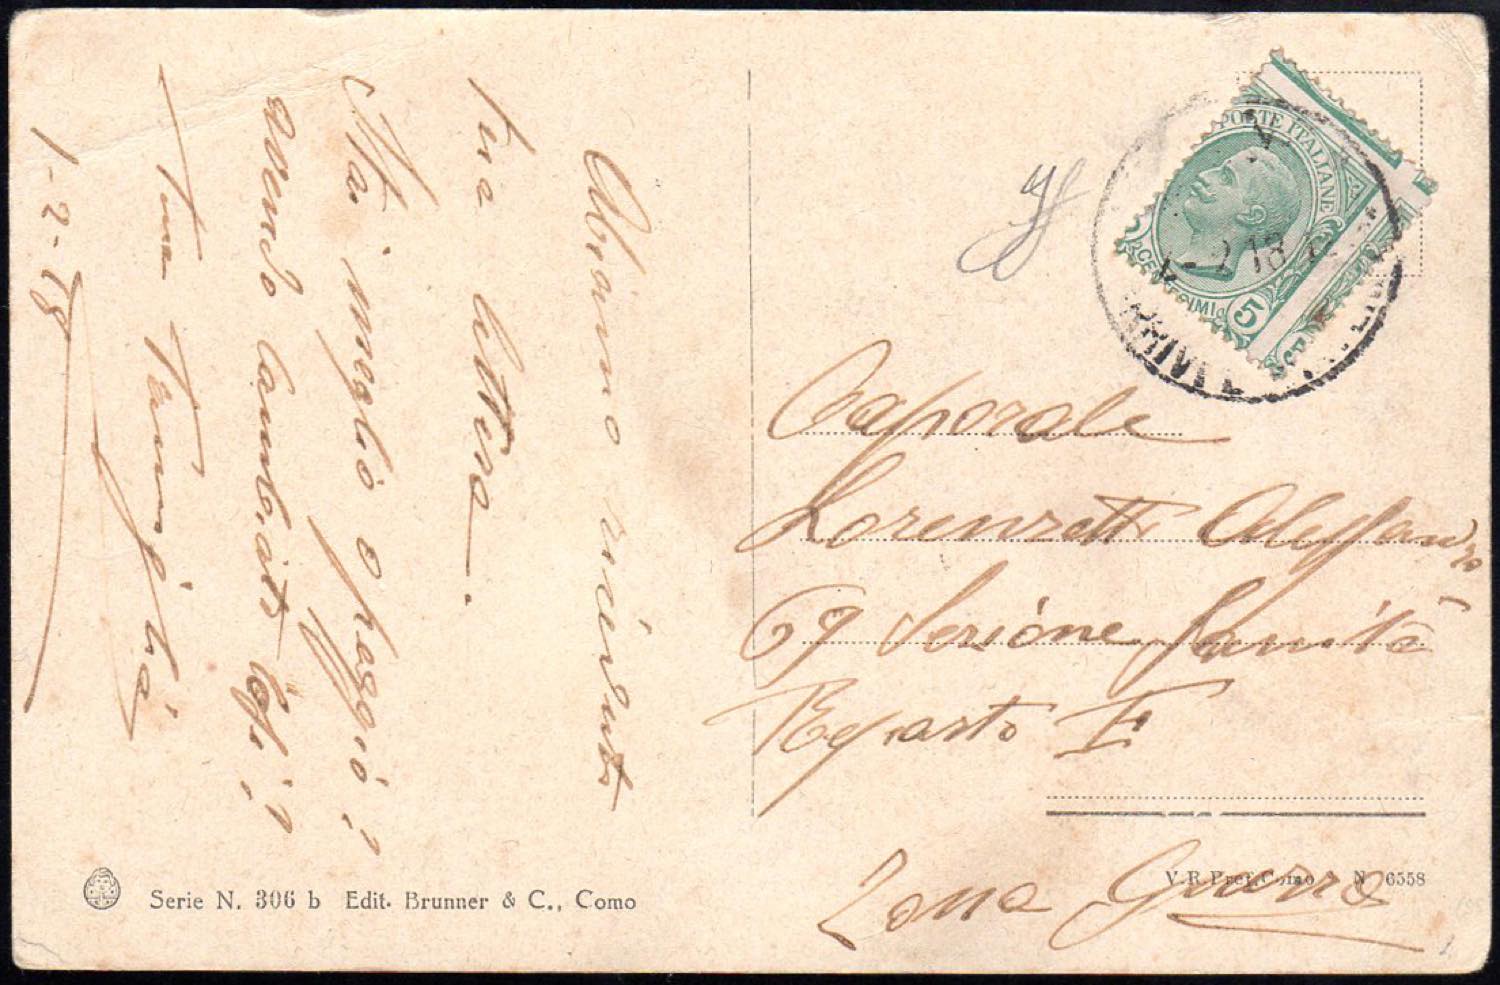 Abbiamo ricevuto
tua lettera.
Stai meglio o peggio?
avendo cambiato
Tua Famiglia
1-2-18
POSTE ITALIANE
CENTESIMI 5
2 18
Caporale
Lorenzetti Alessandro
69 Sezione Sanità
Reparto F
Zona Guerra
Serie N. 306 b Edit. Brunner & C., Como
V. R. Pref. Como N 6558